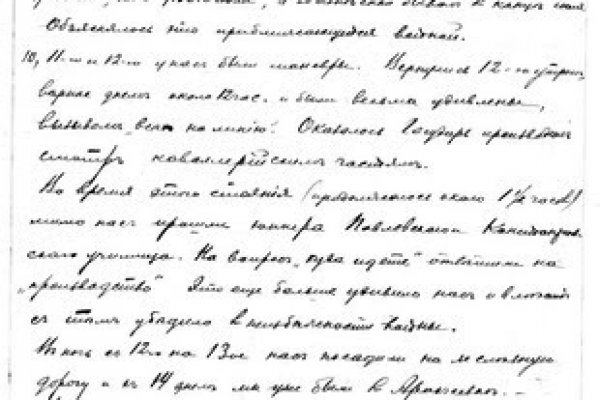 Объяснялось это приближающейся войной.
10, 11-го и 12-го у нас были маневры. Вернулись 12-го утром,
вернее днем около 12 час. и были весьма удивлены,
вызывом „всех на линию“. Оказалось Государь производил
смотр кавалерийским частям.
Во время этого стояния (продолжалось около 1½ часов)
мимо нас прошли юнкера Павловского
ского училища. На вопрос „куда идете“ отвечали на
„производство“ Это еще больше удивило нас и
с этим убедило в неизбежности войны.
В ночь с 12-го на 13-ое нас посадили на железную
дорогу и 14 днем мы уже были в